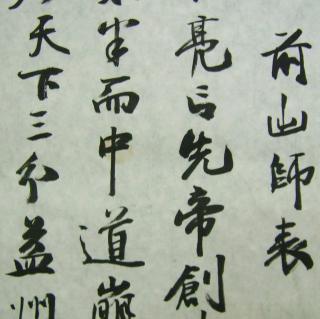 前出師表
亮言先帝創
半而中道崩
天下三分益州